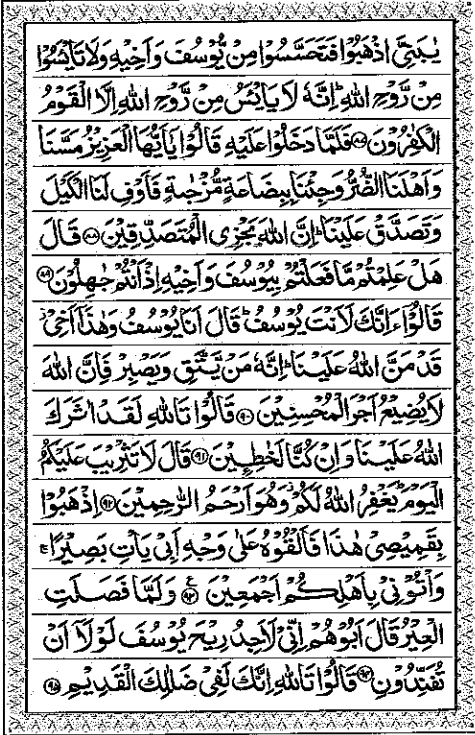 يٰبَنِيَّ اذْهَبُوْا فَتَحَسَّسُوْا مِنْ يُّوْسُفَ وَاَخِيْهِ وَلَا تَايْـَٔسُوْا
مِنْ رَّوْحِ اللّٰهِ ؕ اِنَّهٗ لَا يَايْـَٔسُ مِنْ رَّوْحِ اللّٰهِ اِلَّا الْقَوْمُ
الْكٰفِرُوْنَ ۝۸۷ فَلَمَّا دَخَلُوْا عَلَيْهِ قَالُوْا يٰۤاَيُّهَا الْعَزِيْزُ مَسَّنَا
وَاَهْلَنَا الضُّرُّ وَجِئْنَا بِبِضَاعَةٍ مُّزْجٰىةٍ فَاَوْفِ لَنَا الْكَيْلَ
وَتَصَدَّقْ عَلَيْنَا ؕ اِنَّ اللّٰهَ يَجْزِى الْمُتَصَدِّقِيْنَ ۝۸۸ قَالَ
هَلْ عَلِمْتُمْ مَّا فَعَلْتُمْ بِيُوْسُفَ وَاَخِيْهِ اِذْ اَنْتُمْ جٰهِلُوْنَ ۝۸۹
قَالُوْۤا ءَاِنَّكَ لَاَنْتَ يُوْسُفُ ؕ قَالَ اَنَا يُوْسُفُ وَهٰذَاۤ اَخِيْ ز
قَدْ مَنَّ اللّٰهُ عَلَيْنَا ؕ اِنَّهٗ مَنْ يَّتَّقِ وَيَصْبِرْ فَاِنَّ اللّٰهَ
لَا يُضِيْعُ اَجْرَ الْمُحْسِنِيْنَ ۝۹۰ قَالُوْا تَاللّٰهِ لَقَدْ اٰثَرَكَ
اللّٰهُ عَلَيْنَا وَاِنْ كُنَّا لَخٰطِـِٕيْنَ ۝۹۱ قَالَ لَا تَثْرِيْبَ عَلَيْكُمُ
الْيَوْمَ ؕ يَغْفِرُ اللّٰهُ لَكُمْ ز وَهُوَ اَرْحَمُ الرّٰحِمِيْنَ ۝۹۲ اِذْهَبُوْا
بِقَمِيْصِيْ هٰذَا فَاَلْقُوْهُ عَلٰى وَجْهِ اَبِيْ يَاْتِ بَصِيْرًا ۚ
وَاْتُوْنِيْ بِاَهْلِكُمْ اَجْمَعِيْنَ ۝۹۳ ع وَلَمَّا فَصَلَتِ
الْعِيْرُ قَالَ اَبُوْهُمْ اِنِّيْ لَاَجِدُ رِيْحَ يُوْسُفَ لَوْلَاۤ اَنْ
تُفَنِّدُوْنِ ۝۹۴ قَالُوْا تَاللّٰهِ اِنَّكَ لَفِيْ ضَلٰلِكَ الْقَدِيْمِ ۝۹۵